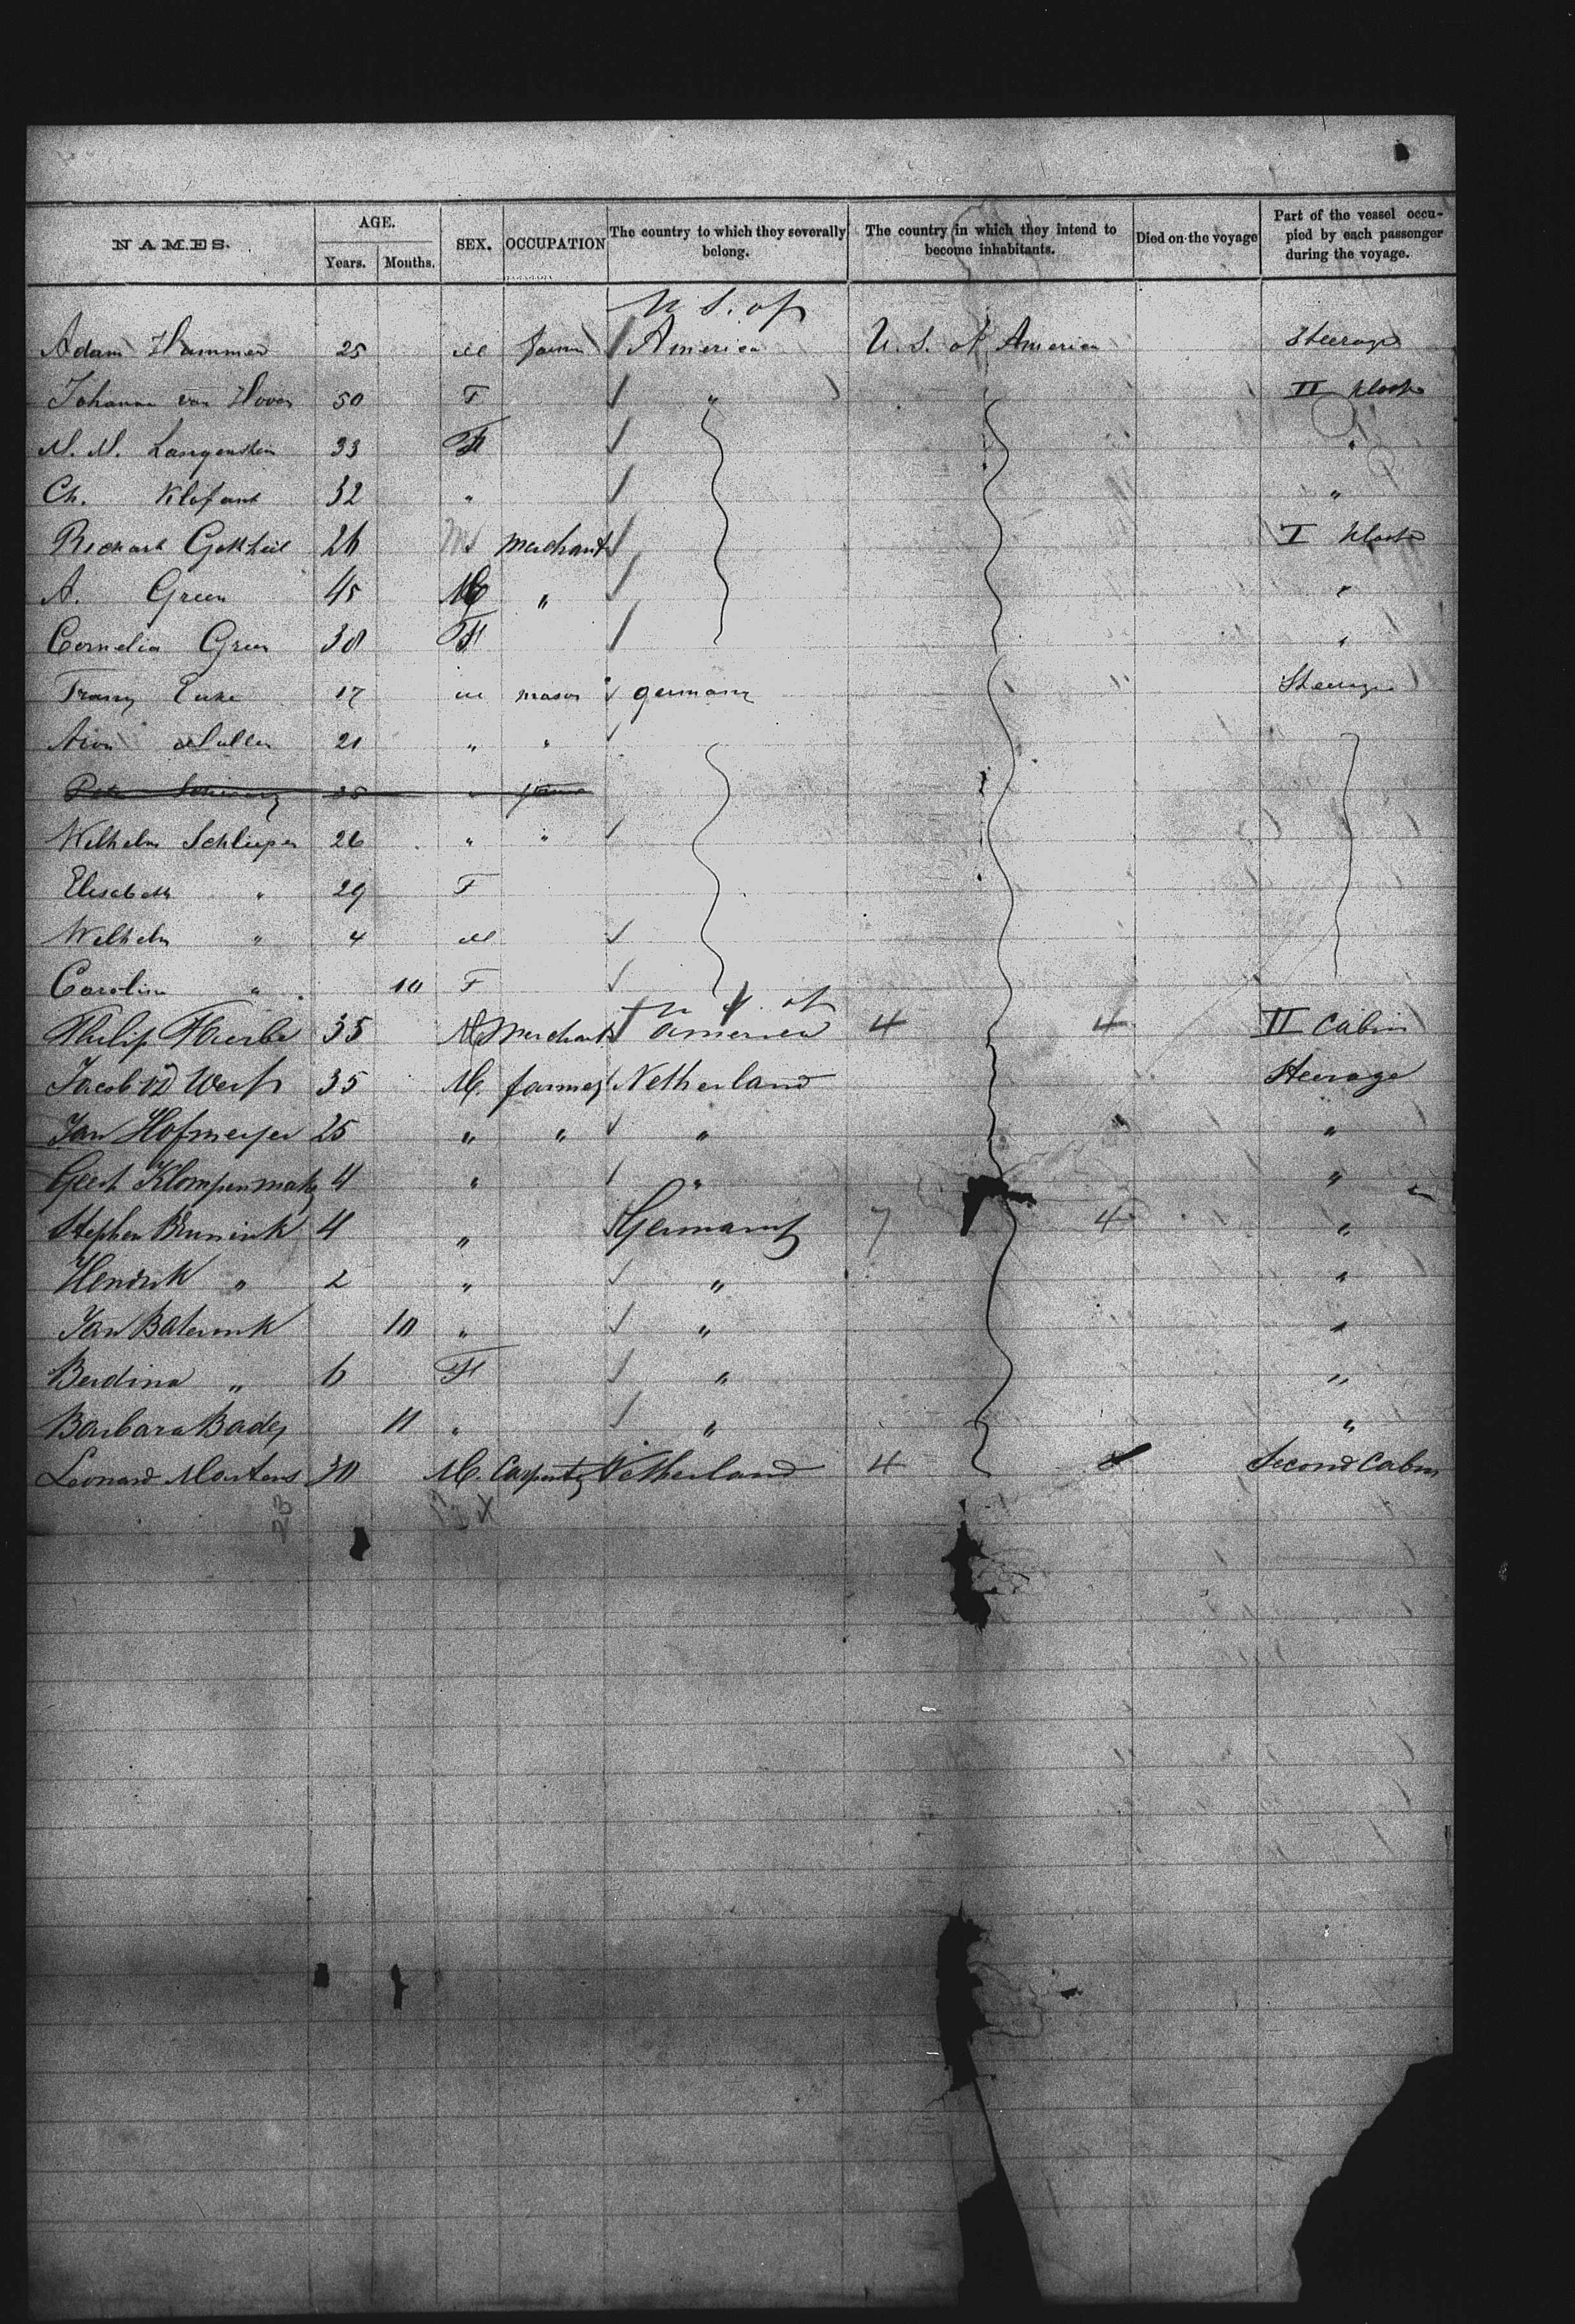 NAMES. AGE. Years. Months. SEX. OCCUPATION The country to which they severally belong. The country in which they intend to become inhabitants. Died on the voyage Part of the vessel occupied by each passenger during the voyage.
U. S. of
Adam Hammer 25 M America U. S. of America Steerage
Johanna von 50 F " II
33 F "
Ch. Klofant 32 " "
Gottheil 26 M merchant I
A. Green 45 M " "
Cornelia Green 30 F "
17 M mason germany Steerage
21 " "
Wilhelm Schlieper 26 " "
Elisabeth " 29 F
Wilhelm " 4 M
Carolina " 10 F
U. S. of
Philip 35 M Merchant America 4 4 II Cabin
Jacob vd Werf 35 M. farmer Netherland Steerage
Jan Hofmeyer 25 " " " "
Geert Klompenmaker 4 " " "
Stephen Brunink 4 " Germany 7 4 "
Hendrik " 2 " " "
Jan Baterink 10 " " "
Berdina " 6 F " "
Barbara Bader 11 " " "
Leonard Martens 30 M. Carpenter Netherland 4 Second Cabin
23